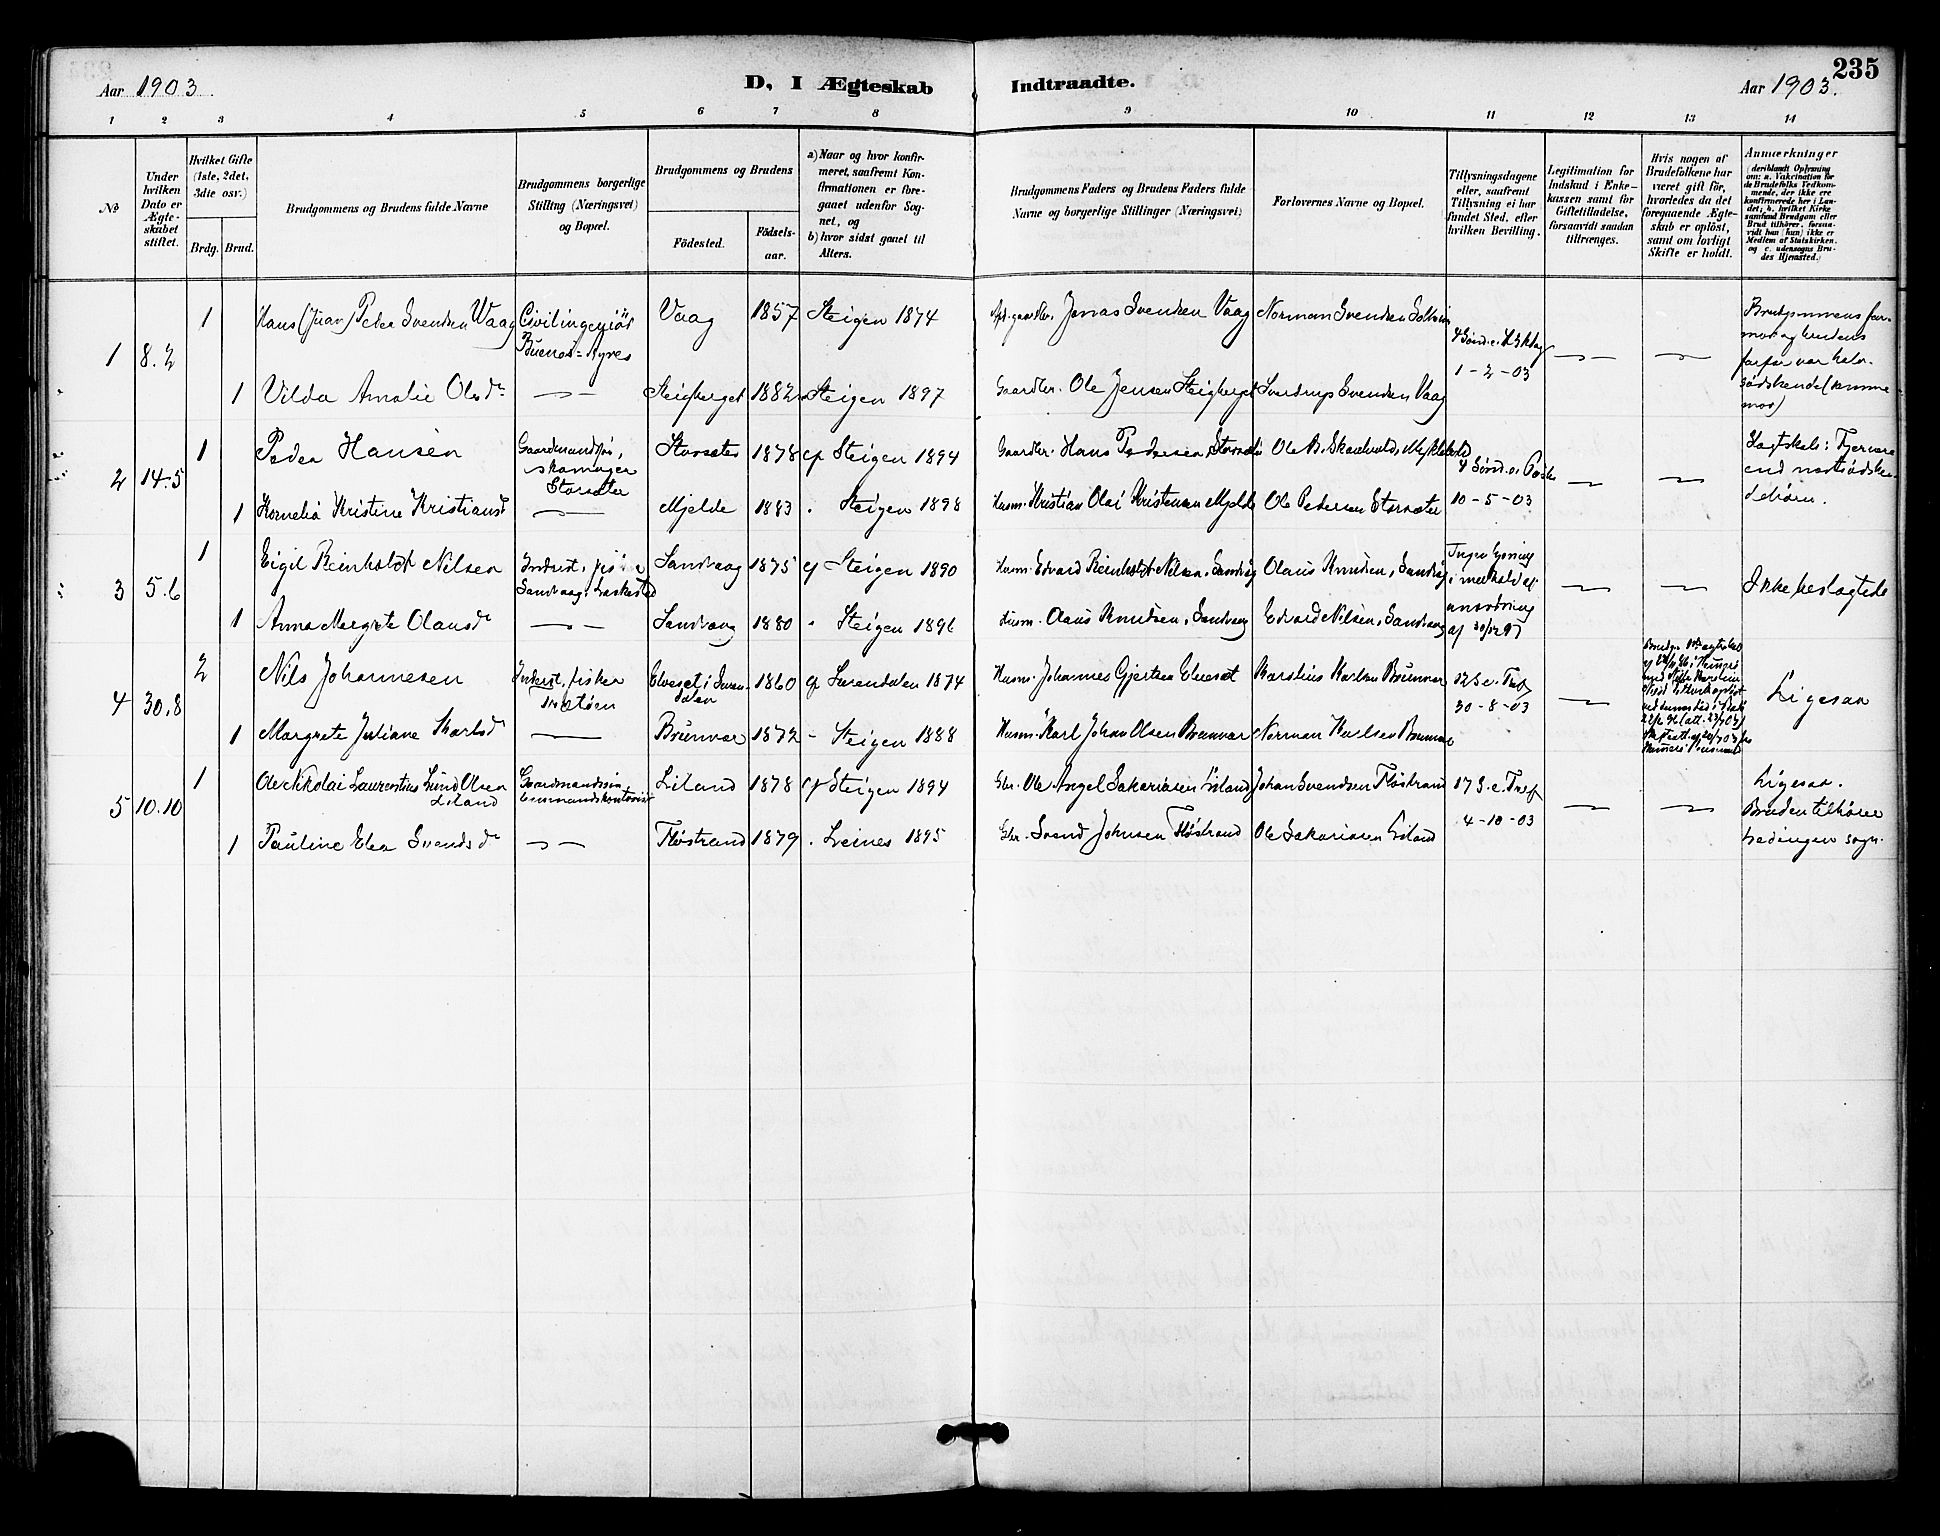 235
Aar 1903.
D, I Ægteskab Indtraadte.
Aar 1903.
1 2 3 4 5 6 7 8 9 10 11 12 13 14
№
Under hvilken Dato er Ægteskabet stiftet.
Hvilket Gifte (1ste, 2det, 3die osv.)
Brdg. Brud.
Brudgommens og Brudens fulde Navne
Brudgommens borgerlige Stilling (Næringsvei) og Bopæl.
Brudgommens og Brudens
Födested.
Födsels-aar.
a) Naar og hvor konfir-
meret, saafremt Kon-
firmationen er fore-
gaaet udenfor Sog-
net, og
b) hvor sidst gaaet til
Alters.
Brudgommens Faders og Brudens Faders fulde
Navne og borgerlige Stillinger (Næringsvei)
Forlovernes Navne og Bopæl.
Tillysningsdagene
eller, saafremt
Tillysning ei har
fundet Sted, efter
hvilken Bevilling.
Legitimation for
Indskud i Enke-
kassen samt for
Giftetilladelse,
forsaavidt saadan
tiltrænges.
Hvis nogen af
Brudefolkene har
været gift för,
hvorledes da det
foregaaende Ægte-
skab er oplöst,
samt om lovligt
Skifte er holdt.
Anmærkninger
(deriblandt Oplysning
om: a. Vakcination for
de Brudefolks Vedkom-
mende, der ikke ere
konfirmerede her i Lan-
det; b. hvilket Kirke-
samfund Brudgom eller
Brud tilhörer, forsaa-
vidt han (hun) ikke er
Medlem af Statskirken,
og c. udensogns Bru-
des Hjemsted.)
1 8.2
1 Hans (Juan) Peder Svendsen Waag Civilingeniör Buenos-Ayres Vaag 1857 Steigen 1874 Jonas Svendsen Vaag Norman Svendsen
1-2-03
1 Vilda Amalie Olsd. Steigberget 1882 Steigen 1897 Gaardbr. Ole Jensen Steigberget Sverdrup Svendsen Vaag
Brudgommens far-
mor og brudens
farfar var halv-
södskende (samme
mor)
2 14.5
1 Peder Hansen Storsæter 1878 Steigen 1894 Gaardbr. Hans Pedersen Storsæter
4 Sönd. e. Paaske
10-5-03
1 Kornelia Kristine Kristiansd. Mjelde 1883 Steigen 1898 Husm. Kristian Olai Kristensen Mjelde Ole Pedersen Storsæter
3 5.6
1 Eigil Reinholdt Nilsen Inderst, fisker Sandvaag 1875 Steigen 1890 Husm. Edvard Reinholdt Nilsen, Sandvåg Olaus Knudsen, Sandvåg
Ingen lysning
i medhold af
anordning
af 30/12 97
Ikke beslægtede
1 Anna Margrete Olausd. Sandvaag 1880 Steigen 1896 Husm. Olaus Knudsen, Sandvaag Edvard Nilsen, Sandvaag
4 30.8
2 Nils Johannesen Inderst, fisker Elveset i Saren-
dalen 1860 Sarendalen 1874 Husm. Johannes Gjertsen Elveset Karstius Karlsen Brunvær
12 S. e. Tref.
30-8-03
Ligesaa
1 Margrete Juliane Karlsd. Brunvær 1872 Steigen 1888 Husm. Karl Johan Olsen Brunvær Norman Karlsen Brunvær
5 10.10
1 Ole Nikolai Laurentius Lund Olsen
Liland Gaardmandssön
Lensmandskontorist Liland 1878 Steigen 1894 Gbr. Ole Angel Sakariasen Liland Johan Svendsen Flöstrand
17 S. e. Tref
4-10-03
Ligesaa.
Bruden tilhörer
Ledingen sogn.
1 Pauline Elea Svendsd. Flöstrand 1879 Leines 1895 Gbr. Svend Johnsen Flöstrand Ole Sakariasen Liland